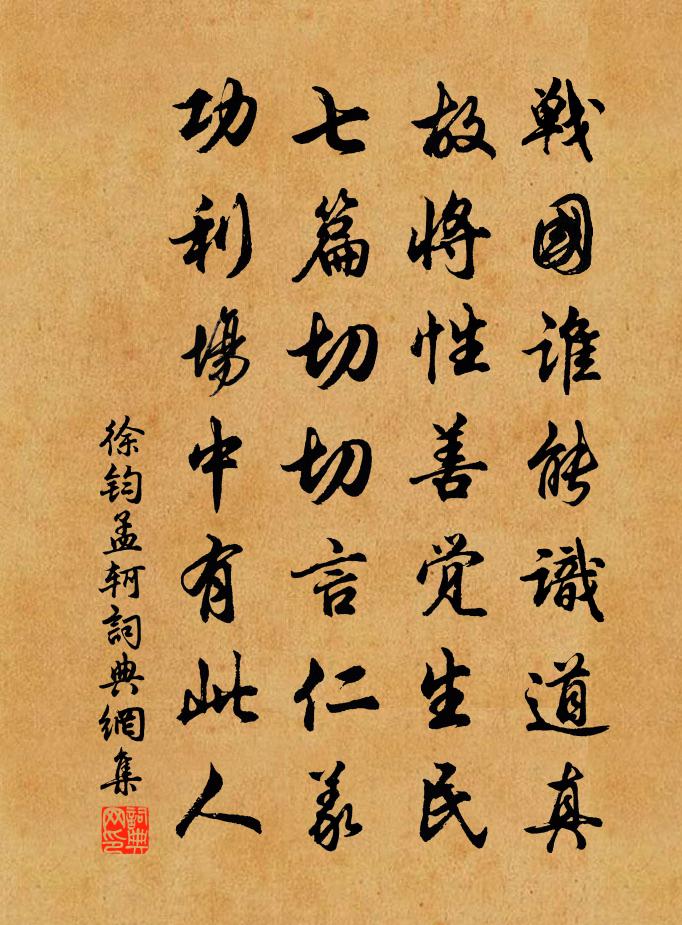 戦國誰能識道真
故將性善覚生民
七篇切切言仁義
功利場中有此人
徐鈞孟軻詞典網集
詞典网印